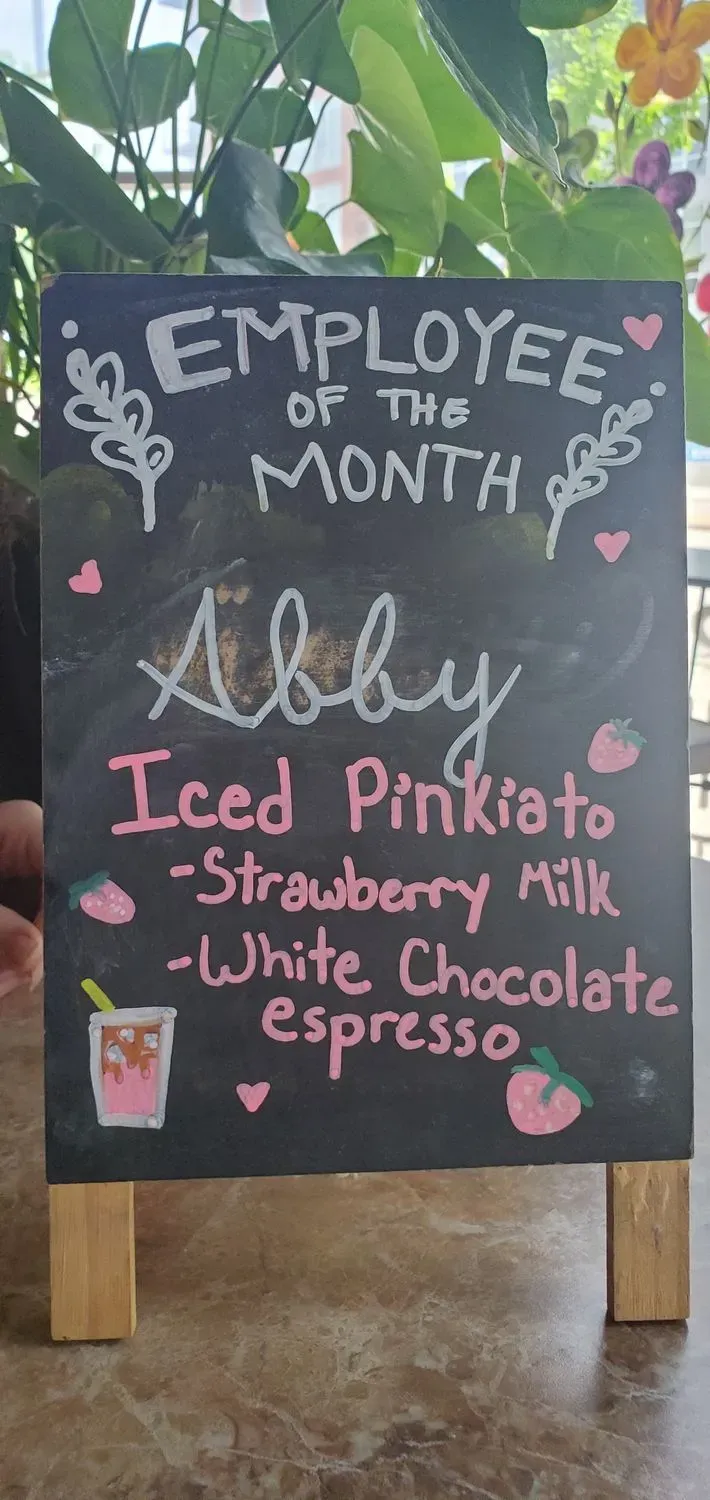 EMPLOYEE
OF THE
MONTH
Abby
Iced Pinkiato
-Strawberry Milk
-White Chocolate
espresso